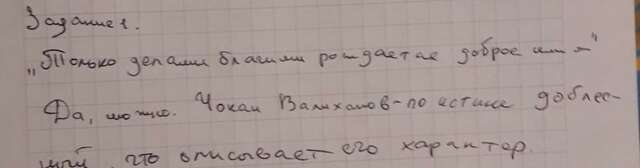 Задание 1.
„Только делами благими рождается доброе имя"
Да, можно. Чокан Валиханов - по истине доблес-
ный, что описывает его характер.